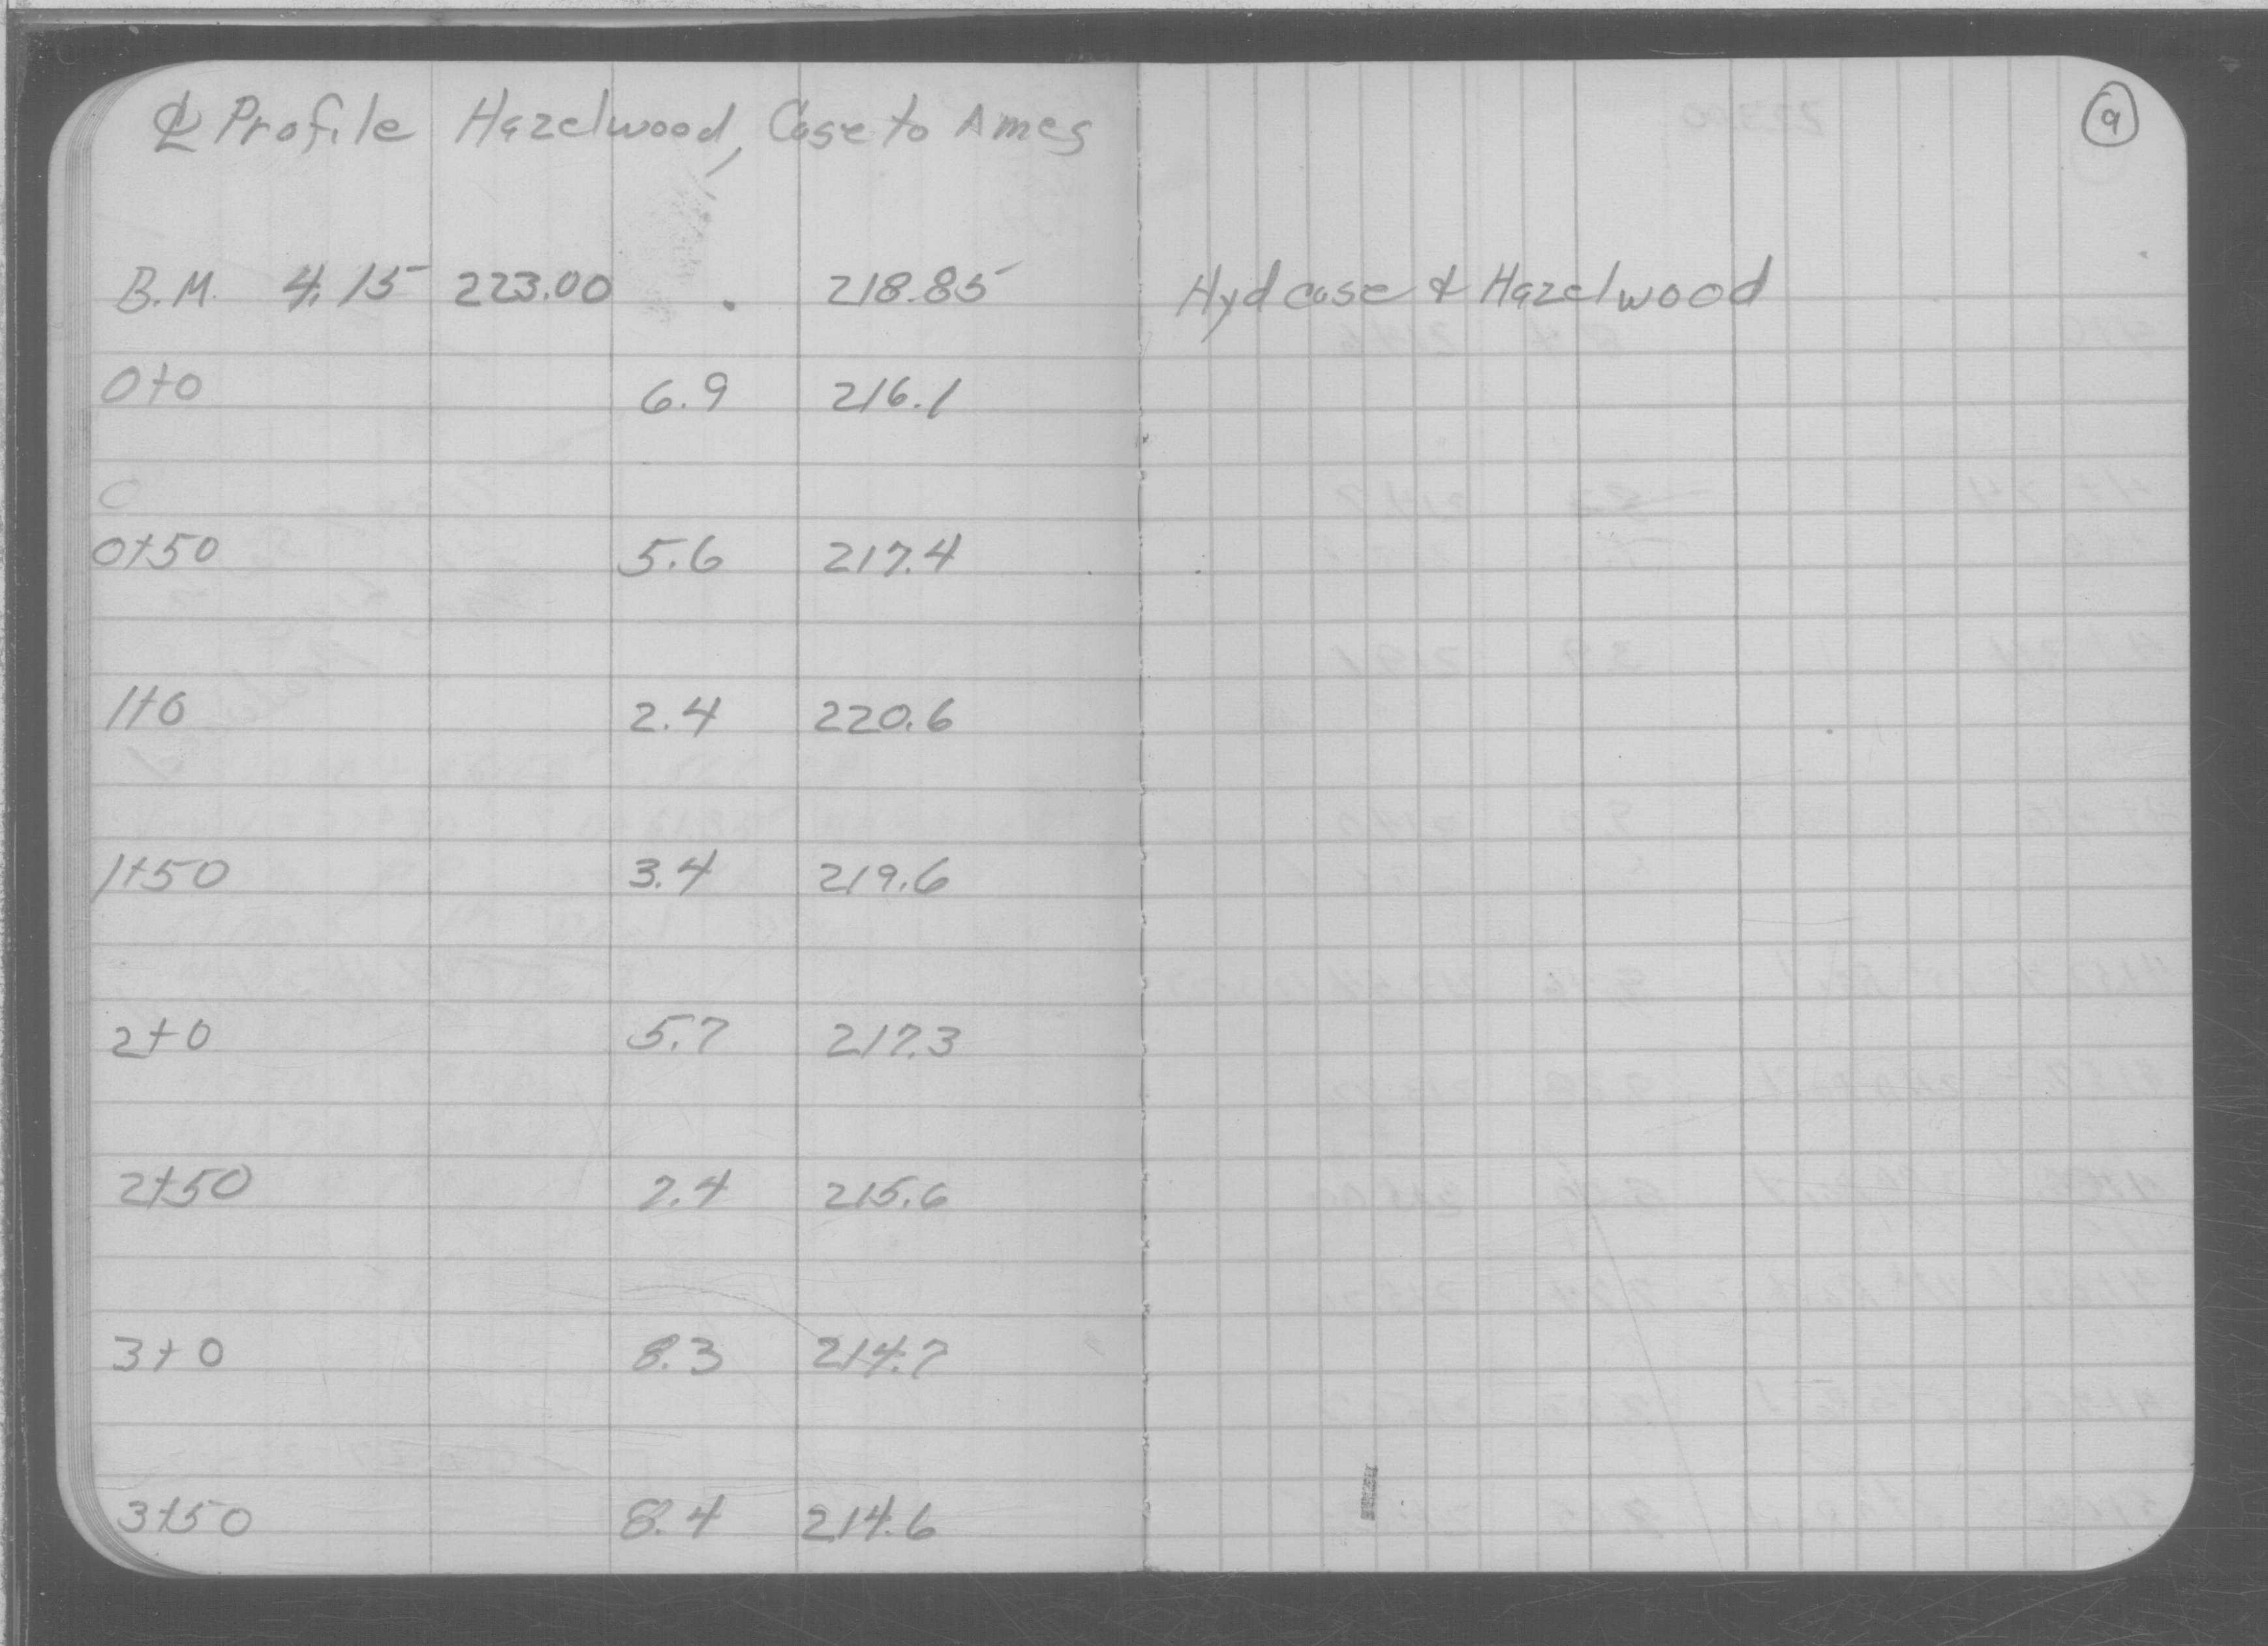 ℄ Profile Hazelwood, Case to Ames
9
B.M. 4.15 223.00 218.85 Hyd case & Hazelwood
0+0 6.9 216.1
0+50 5.6 217.4
1+0 2.4 220.6
1+50 3.4 219.6
2+0 5.7 217.3
2+50 7.4 215.6
3+0 8.3 214.7
3+50 8.4 214.6